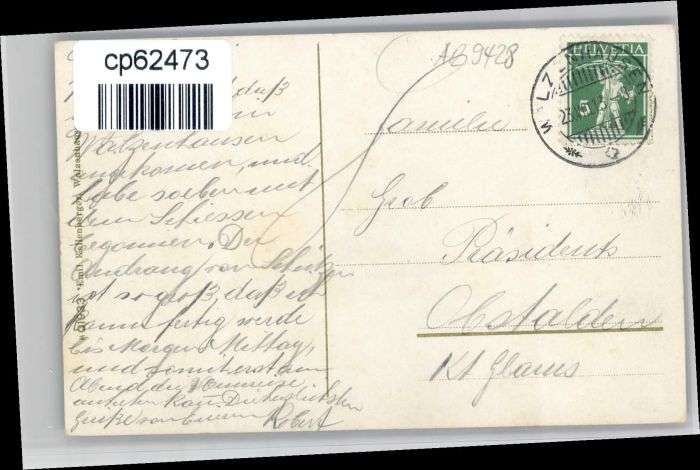 cp62473
AB9428
HELVETIA
5
WALZENHAUSEN
daß
Walzenhausen
angekommen, und
habe soeben mit
dem Schiessen
begonnen. Der
Andrang von Schützen
ist so groß, daß ich
kaum fertig werde
bis Morgen Mittag,
und somit erst am
Abend die Heimreise
antreten kann. Die herzlichsten
Grüße von Eurem Robert
Familie
Grob
Präsidents
Obstalden
Kt Glarus
51933 Emil Kellenberger, Walzenhausen